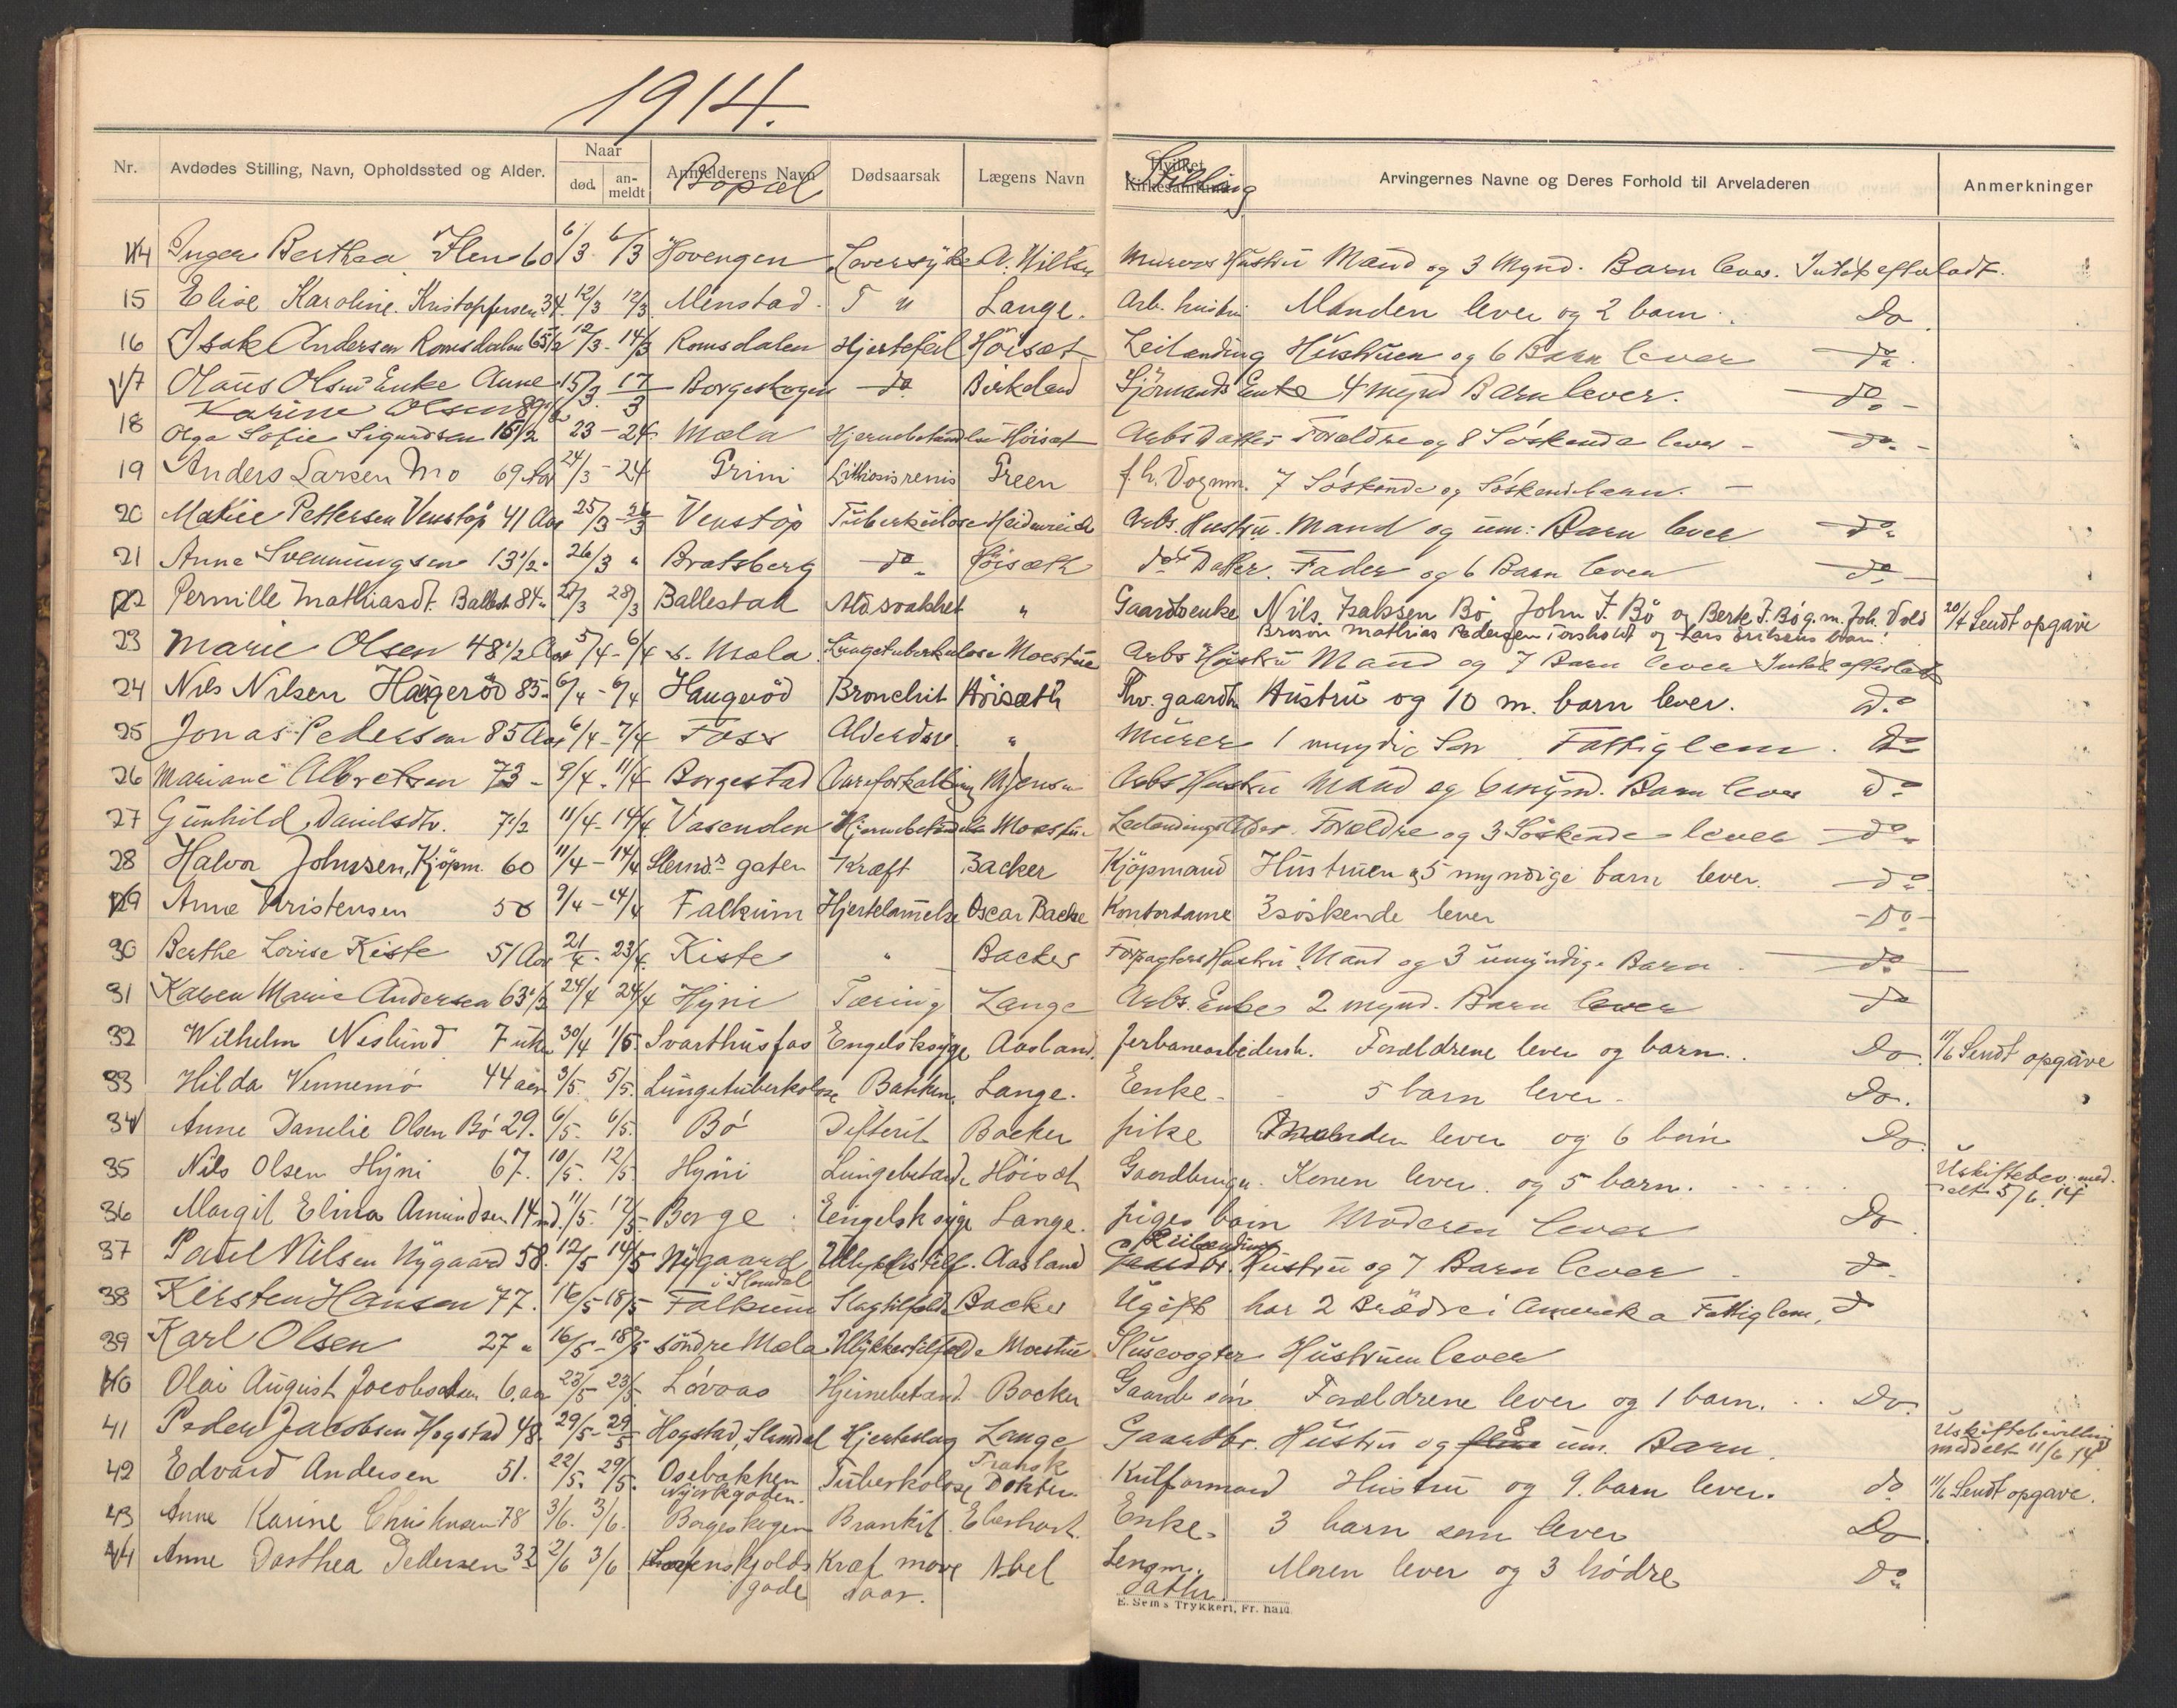 1914.
Nr. Avdødes Stilling, Navn, Opholdssted og Alder. Naar død. an-meldt Anmelderens Navn Bopæl Dødsaarsak Lægens Navn Hvilket Kirkesamfund Stilling Arvingernes Navne og Deres Forhold til Arveladeren Anmerkninger
14 Inger Berthea Flen 60 6/3 6/3 Hovengen Leversyke A. Nilsen Murers Hustru Mand og 3 Mynd. Barn lever. Intet efterladt.
15 Elise Karoline Kristoffersen 34. 12/3 12/3 Menstad T u Lange. Arb. hustru Manden lever og 2 barn. Do
16 Isak Andersen Romsdalen 65 1/2 12/3 - 14/3 Romsdalen Hjertefeil Höisæt Leilænding Hustruen og 6 Barn lever do.
17 Olaus Olsens Enke Anne 15/3. 17/3 Borgeskogen do. Birkeland Sjömands Enke 4 mynd Barn lever. do. -
Karine Olsen 89
18 Olga Sofie Sigurdsen 15 1/2 23 - 24 Mæla Hjernebetændelse Höisæt Arbs Datter Forældre og 8 Söskende lever - do. -
19 Anders Larsen Mo 69 Aar 24/3 - 24 Grini Lithiosis renis Green f. h. Vognm. 7 Söskende og Söskendebarn. -
20 Mathie Pettersen Venstöp 41 Aar 25/3 - 26/3 Venstöp Tuberkulose Heidenreich Arbs. Hustru. Mand og um: Barn lever do
21 Anne Svenningsen 13 1/2. 26/3 " Bratsberg do. Höisæth do Datter. Fader og 6 Barn lever do
22 Pernille Mathiasdt. Ballest 84 " 27/3 28/3 Ballestad Ald.svakhet " Gaardbenke Nils Isaksen Bö John I. Bö og Berte I. Bö g. m. Joh. Vold 20/4 Sendt opgave
Mathias Pedersen og Lars Eriksens barn.
23 Marie Olsen 48 1/2 Aar 5/4 - 6/4 s. Mæla Lungetuberkulose Moestue Arbs Hustru Mand og 7 Barn lever Intet efterladt
24 Nils Nilsen Haugeröd 85. 6/4 - 6/4 Haugeröd Bronchit Höisæth Fhv. gaardb. Hustru og 10 m. barn lever. do
25 Jonas Pedersen 85 Aar 6/4 - 7/4 Foss Alderdsv. " Murer 1 myndig Sön Fattiglem. do
26 Mariane Albretsen 73 - 9/4 - 11/4 Borgestad Aareforkalkning Mjensen Arbs Hustru Mand og 6 mynd. Barn lever do
27 Gunhild Danielsdtr. 7 1/2 11/4 - 14/4 Vasenden Hjernebetændelse Moestue Leilændingsdatter. Forældre og 3 Söskende lever do
28 Halvor Johnsen, Kjöpm. 60 11/4 - 14/4 Slemds gaten Kræft Backer Kjöpmand Hustruen og 5 myndige barn lever. do
29 Anne Kristensen 56 9/4 - 14/4 Falkum Hjertelammelse Oscar Backe Kontordame 3 söskende lever - Do -
30 Berthe Lovise Kiste 51 Aar 21/4. 23/4. Kiste " Backer Forpagters Hustru. Mand og 3 umyndige Barn. do
31 Karen Marie Andersen 63 1/2 24/4 24/4 Hyni Tæring Lange Arbs. Enke 2 mynd. Barn lever do
32 Wilhelm Neslund 7 uker 30/4 1/5. Svarthusfos Engelsksyge Aasland. Jerbanearbeidersb. Forældrene lever og barn.. Do 11/6 Sendt opgave
33 Hilda Vennemo 44 aar 3/5. 5/5. Lungetuberkolose Bakken. Lange. Eenke - 5 barn lever - Do.
34 Anne Danelie Olsen Bö 29. 6/5. 6/5. Bö Difterit Backer pike Manden lever og 6 barn Do.
35 Nils Olsen Hyni 67. 10/5. 12/5. Hyni Lungebetænd. Höisæt Gaardbruger. Konen lever og 5 barn. Uskiftebev. med-delt 5/6.14
36 Margit Elina Amundsen 14 md. 11/5. 12/5. Borge Eengelsk syge Lange. piges barn Moderen lever Do
37 Paul Nilsen Nygaard 58. 12/5 14/5 Nygaard i Slemdal Ulykkestilf. Aasland Gaardbr. Leilænding Hustru og 7 Barn lever - do
38 Kirsten Hansen 77. 16/5 18/5 Falkum Slagtilfælde Backer Ugift har 2 Brödre i Amerika Fattiglem. do
39 Karl Olsen 27 " 16/5 - 18/5 söndre Mæla Ulykkestilfælde Moestue Slusevogter Hustruen lever
40 Olai August Jacobsen 6. aar 23/5 23/5. Lövaas Hjernebetænd. Backer Gaardb sön. Forældrene lever og 1 barn. . . Do.
41 Peder Jacobsen Hogstad 48. 29/5 - 29/5 Hogstad, Slemdal Hjerteslag Lange Gaardbr. Hustru og flere 8 um. Barn. Uskiftebevilling meddelt 11/6 14
42 Edvard Andersen 51. 22/5. 29/5. Osebakken Tuberkolose Fransk Dokter. Kulformand Hustru og 9. barn lever. do 11/6 Sendt opgave.
43 Anne Karine Christensen 78 3/6. 3/6. Borgeskogen Brankit. Eberhart. Enke. 3 barn som lever Do
44 Anne Dorthea Pedersen 32 2/6 3/6 Løvenskjolds gade Kræf mave saar. Abel Lensm. datter. Moren lever og 3 brödre Do
E. Sem's Trykkeri, Fr. hald.